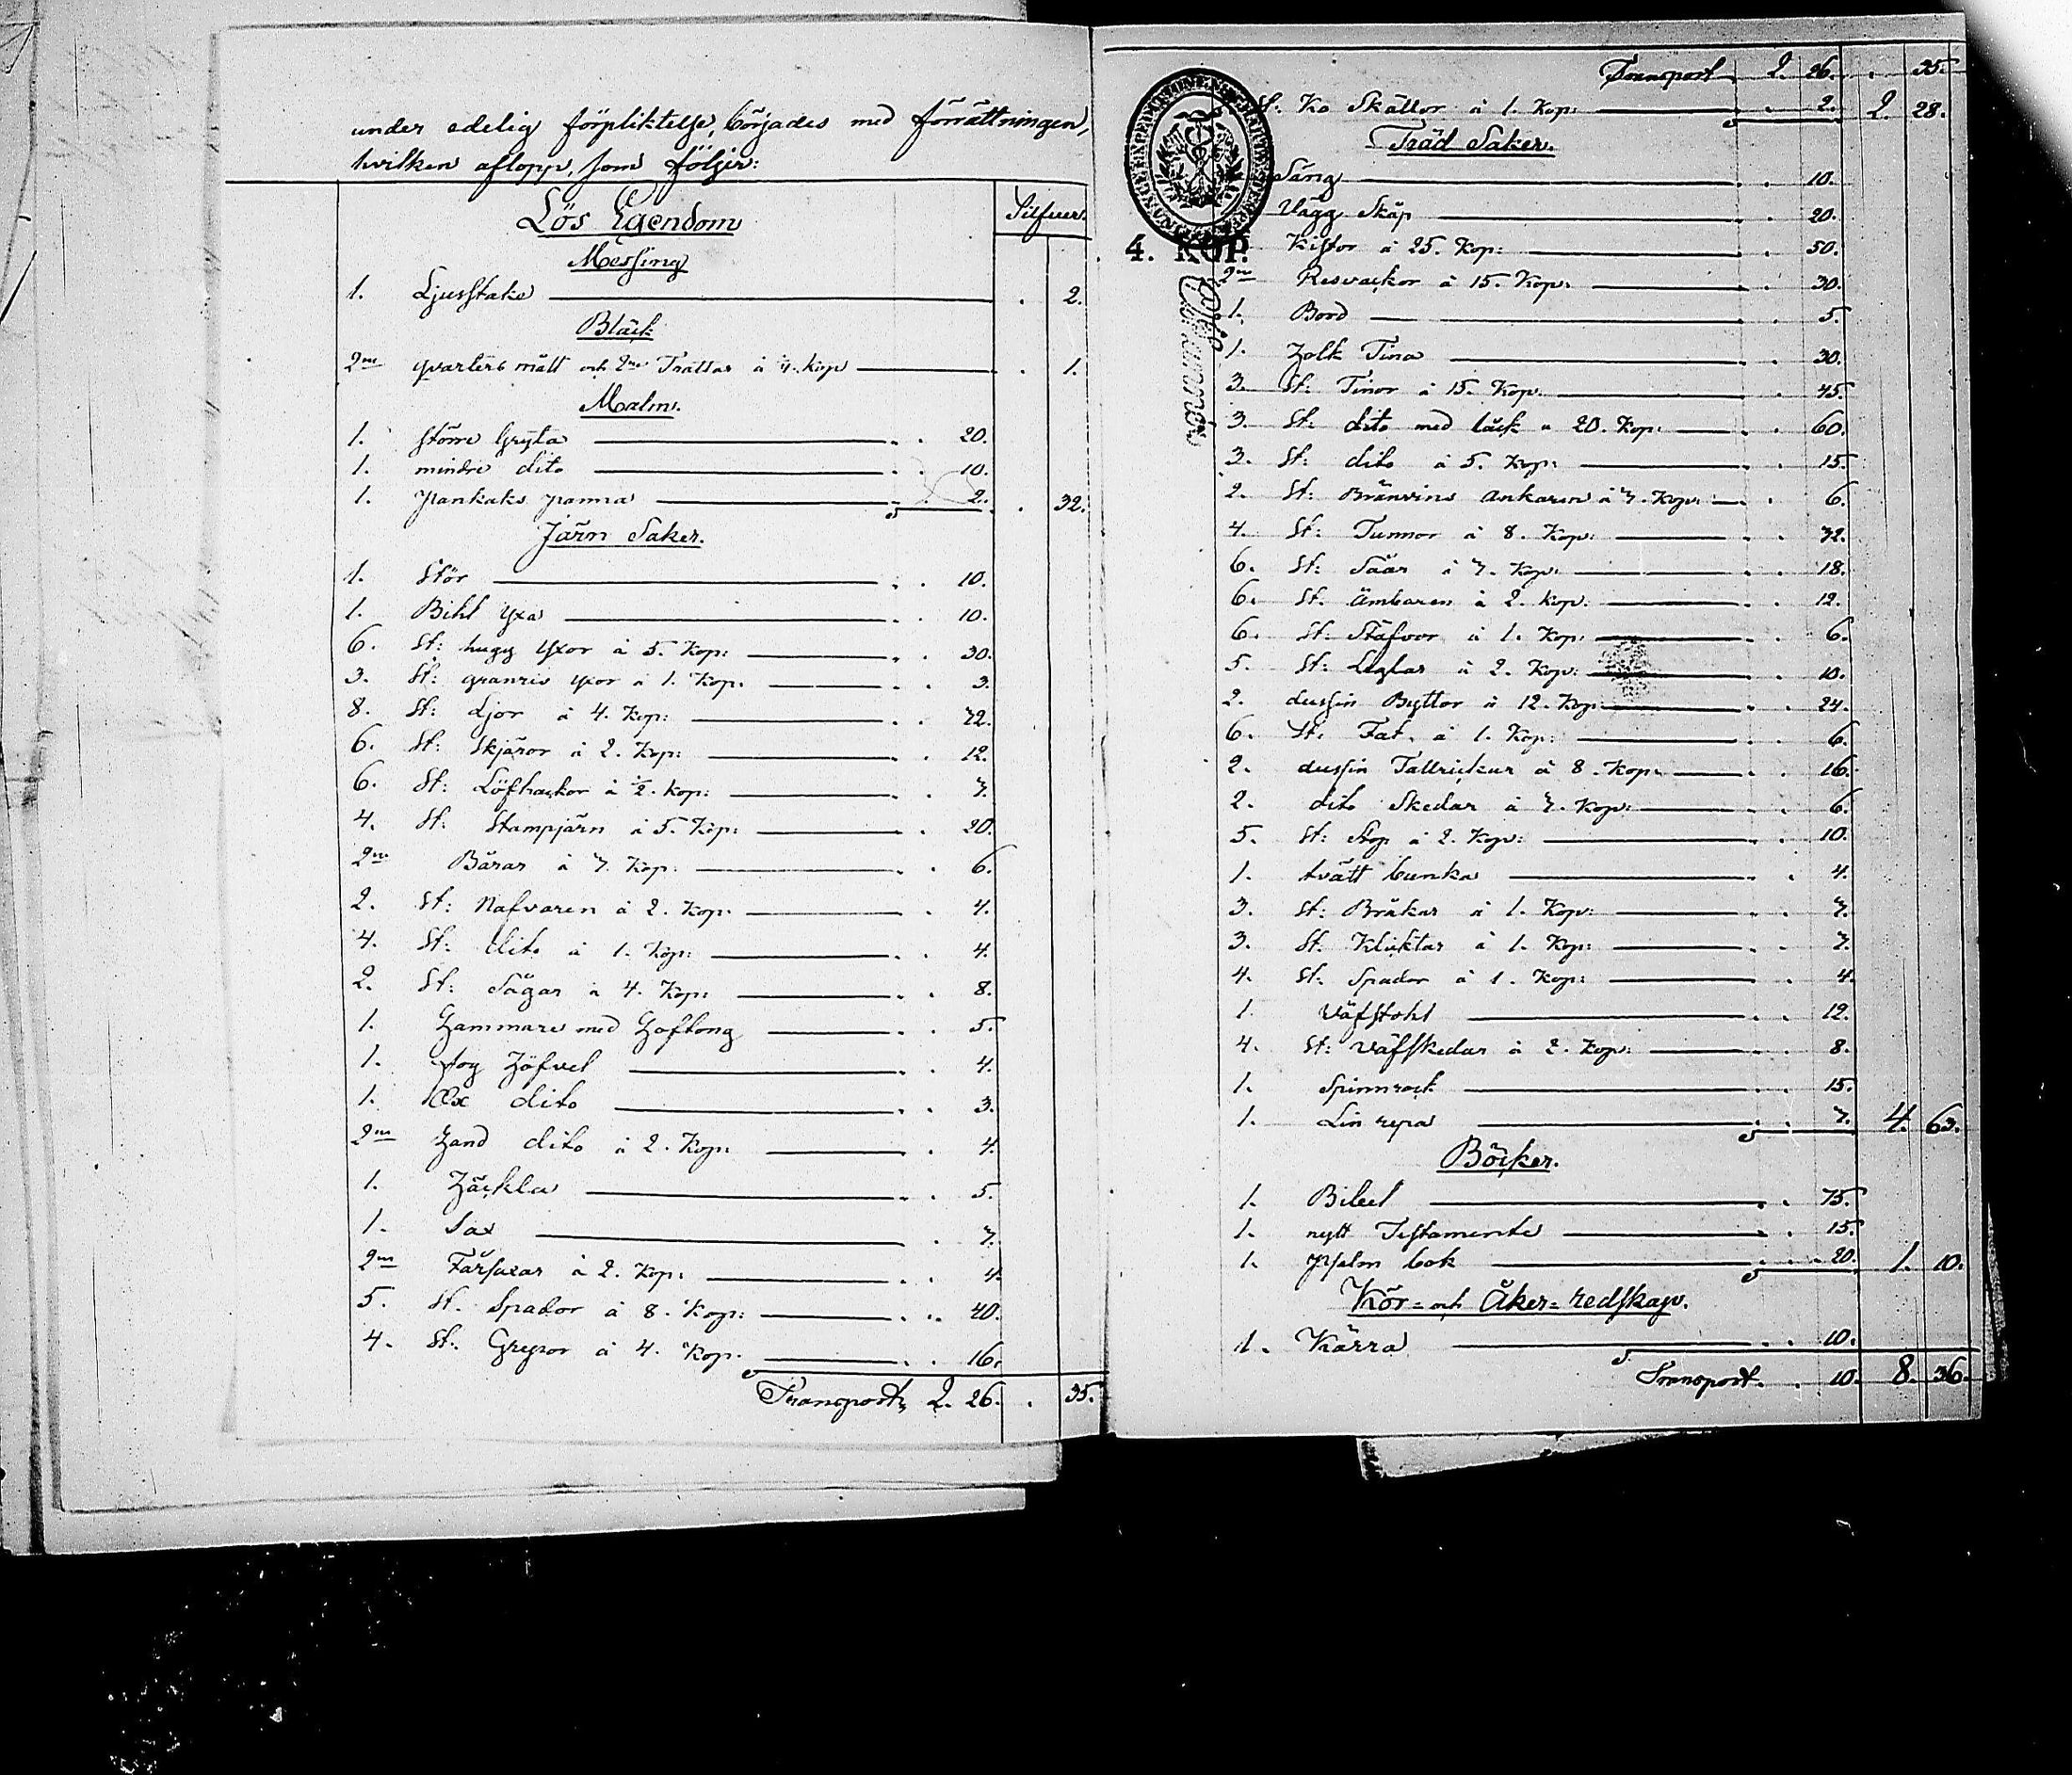 under edelig förpliktelse, börjades med förrättningen,
hvilken aflopp, som följer:
Silfver.
Lös Egendom
Messing
1. Ljusstake . 2.
Bläck
2ne qvarters mått och 2ne Trattar à 4. kop . 1.
Malm.
1. större Gryta . . 20.
1. mindre dito . . 10.
1. pankaks panna . . 2. . 32.
Järn Saker.
1. Stör . . 10.
1. Bihl yxa . . 10.
6. St: hugg yxor à 5. Kop: . . 30.
3. St: granris yxor à 1. Kop. . . 3.
8. St: Ljor à 4. Kop: . . 32.
6. St: Skjäror à 2. Kop: . . 12.
6. St: Löfhackor à ½. kop: . . 3.
4. St: Stampjärn à 5. Kop: . . 20.
2ne Bårar à 3. Kop: . . 6.
2. St: Nafvaren à 2. Kop: . 4.
4. St: dito à 1. Kop: . . 4.
2. St: Sågar à 4. Kop: . . 8.
1. Hammare med Hoftong . . 5.
1. fog Höfvel . . 4.
1. Ox dito . . 3.
2ne Hand dito à 2. Kop: . 4.
1. Häckla . . 5.
1. Sax . 3.
2ne Fårsaxar à 2. Kop: . . 4.
5. St. Spador à 8. Kop: . . 40.
4. St. Grepor à 4. Kop. . . 16.
Transport, 2. 26. . 35.
Transport. 2. 26. . 35.
St. Ko Skällor à 1. Kop: . . 2. 2. 28.
Träd Saker.
Säng . . 10.
Vägg Skåp . . 20.
4. KOP.
Kistor à 25. Kop: . . 50.
2ne Resvackor à 15. Kop: . . 30.
1. Bord . . 5.
1. Holk Tina . . 30.
3. St: Tinor à 15. Kop. . . 45.
3. St: dito med läck à 20. Kop: . . 60.
3. St: dito à 5. Kop: . . 15.
2. St: Bränvins ankaren à 3. Kop: . . 6.
4. St: Tunnor à 8. Kop: . . 32.
6. St: Såar à 3. Kop: . . 18.
6. St. Ämbaren à 2. kop: . . 12.
6. St: Stäfvor à 1. Kop: . . 6.
5. St: Leglar à 2. Kop: . . 10.
2. dussin Byttor à 12. Kop: . . 24.
6. St. Fat. à 1. Kop: . . 6.
2. dussin Tallrickar à 8. Kop: . . 16.
2. dito Skedar à 3. Kop: . . 6.
5. St: Stop à 2. Kop: . . 10.
1. tvätt bunka . . 4.
3. St: Bråkar à 1. Kop: . . 3.
3. St. Kliktar à 1. Kop: . . 3.
4. St: Spador à 1. Kop: . . 4.
1. Väfstohl . . 12.
4. St: Väfskedar à 2. Kop: . . 8.
1. Spinnrock . . 15.
1. Lin repa . . 3. 4. 63.
Böcker.
1. Bibel . . 75.
1. nytt Testamente . . 15.
1. psalm bok . . 20. 1. 10.
Kör= och Åker=redskap.
1. Kärra . . 10.
Transport. . 10. 8. 36.